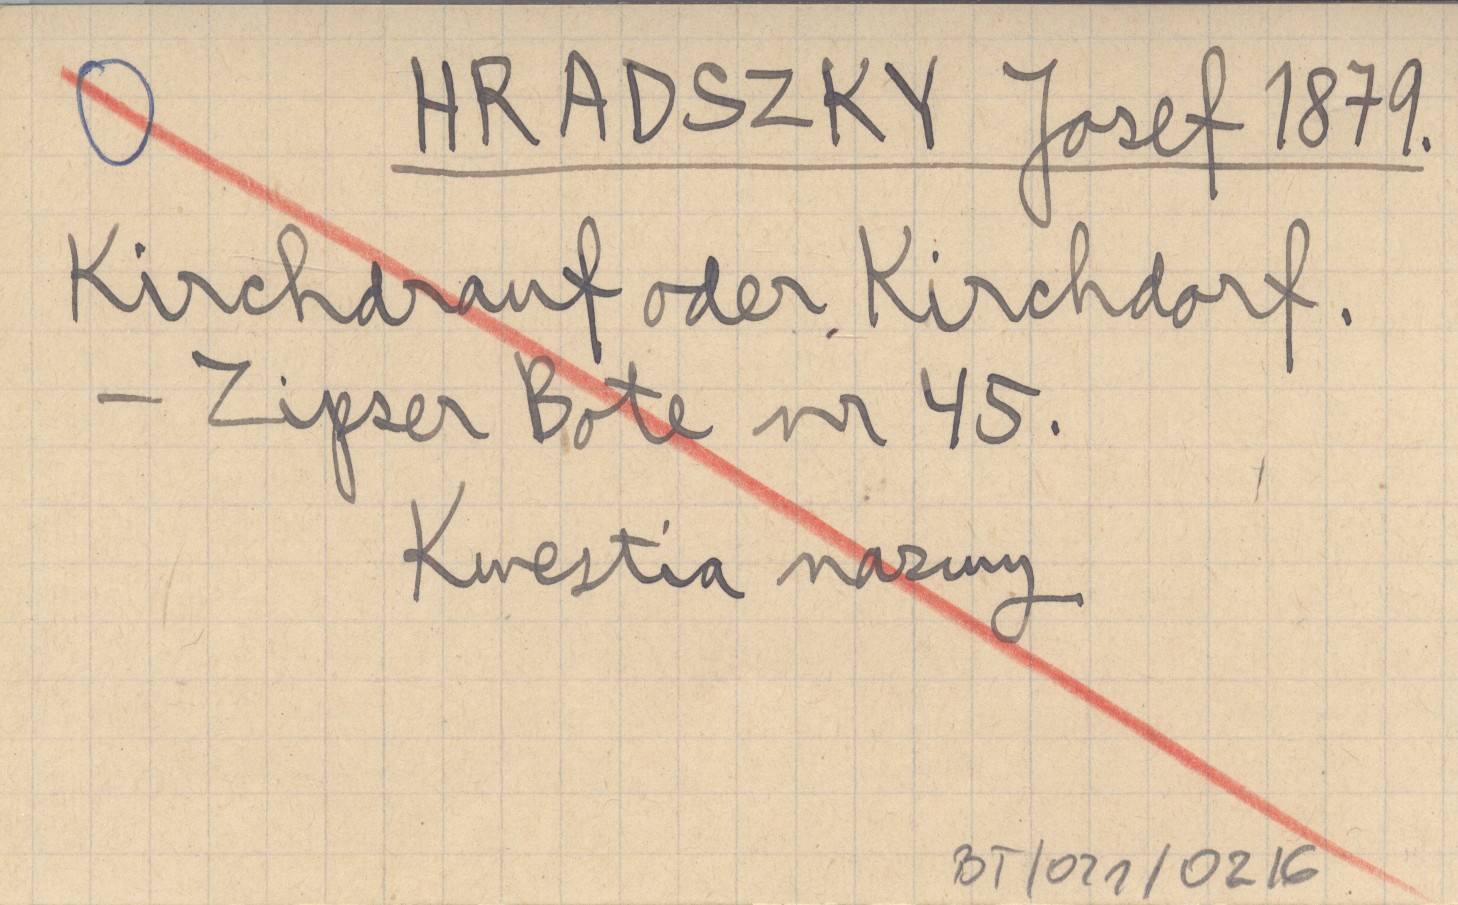 HRADSZKY Josef 1879.
Kirchdrauf oder Kirchdorf.
— Zipser Bote nr 45.
Kwestia nazwy
BT/021/0216